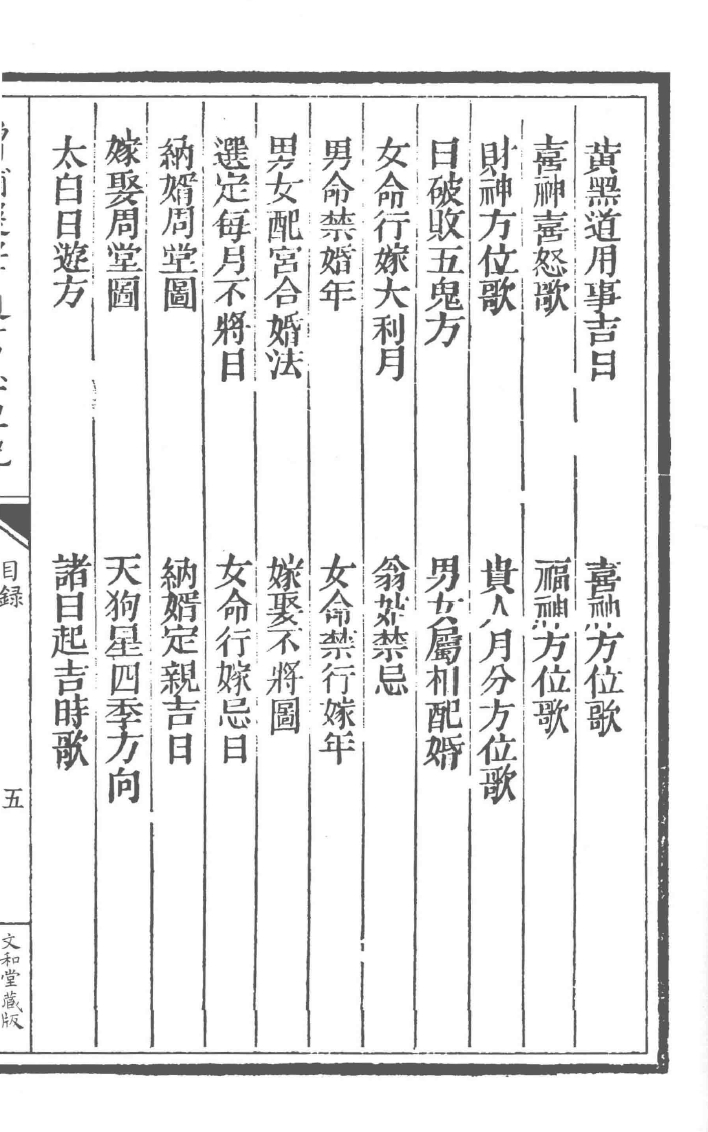 黃黑道用事吉日　喜神方位歌
喜神喜怒歌　福神方位歌
財神方位歌　貴人月分方位歌
日破敗五鬼方　男女屬相配婚
女命行嫁大利月　翁姑禁忌
男命禁婚年　女命禁行嫁年
男女配宮合婚法　嫁娶不將圖
選定每月不將日　女命行嫁忌日
納婿周堂圖　納婿定親吉日
嫁娶周堂圖　天狗星四季方向
太白日遊方　諸日起吉時歌
目錄
五
文和堂藏版